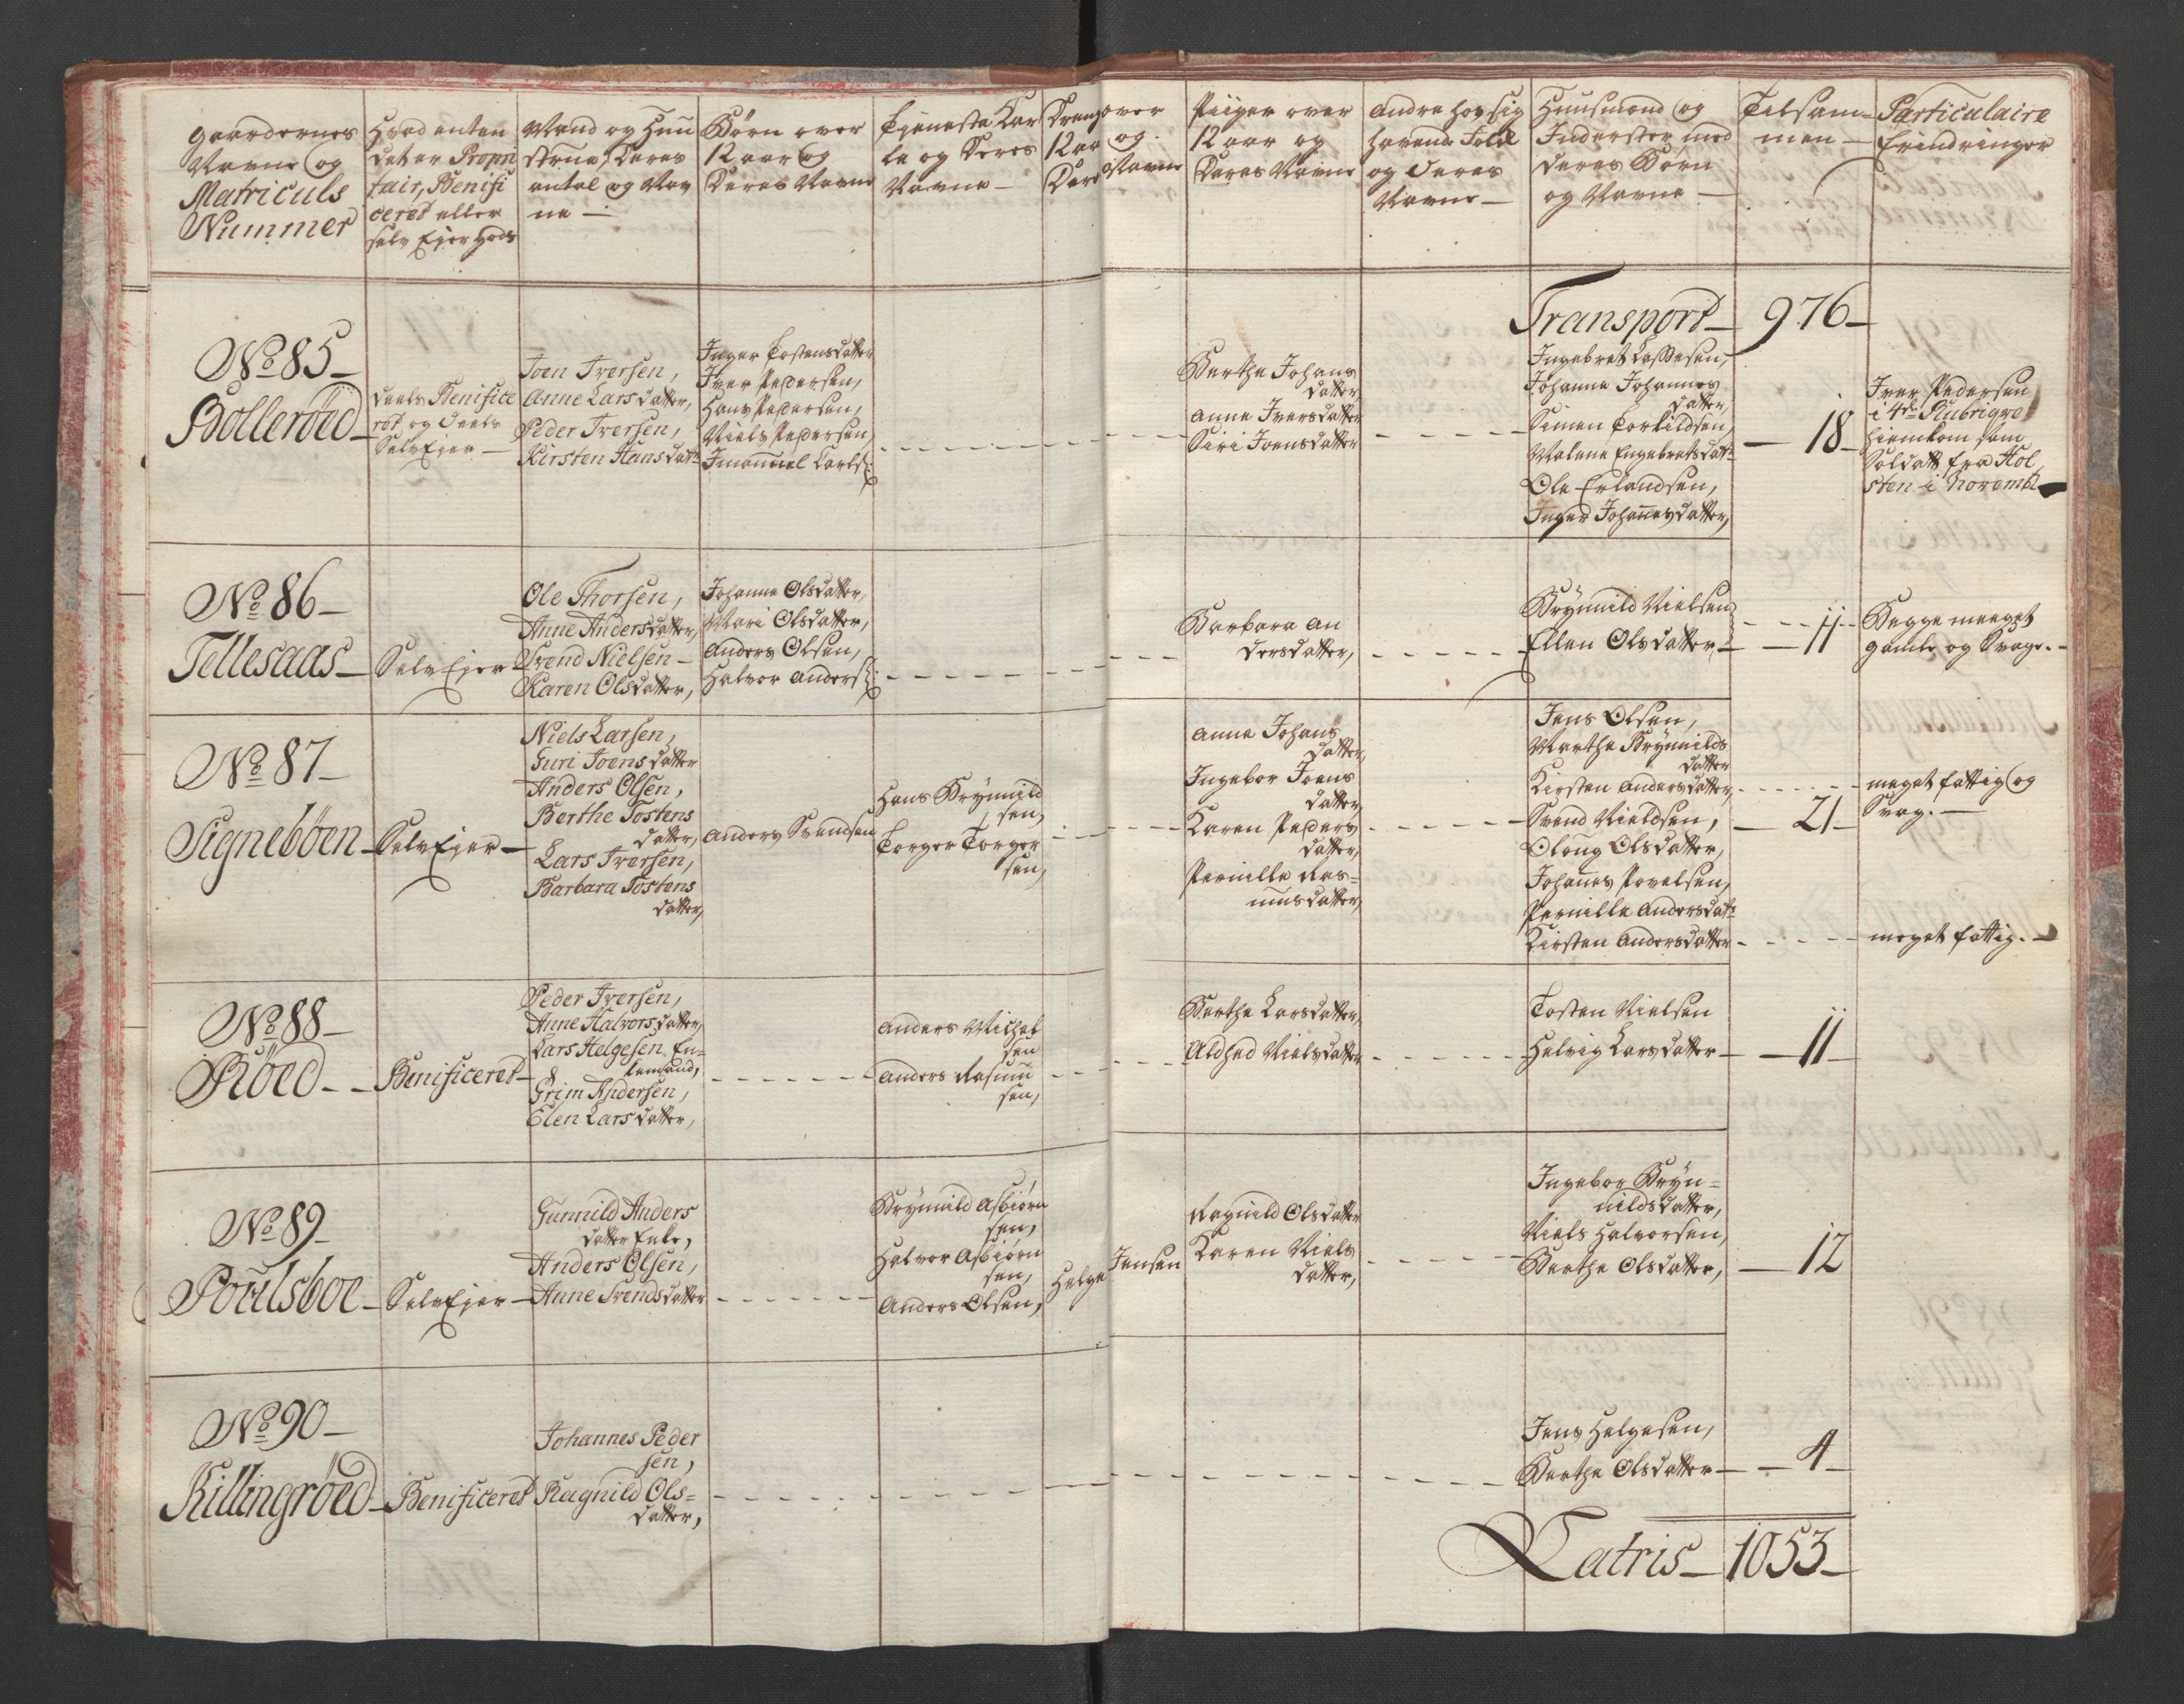 Gaardernes
Navne og
Matriculs
Nummer
Hvad enten
det er Propri
tair, Benifi
ceret eller
selv Ejer gods
Mand og Huu
strue, deres
antal og Nav
ne —
Børn over
12 aar og
Deres Navne
Tjeneste Kar
le og Deres
Navne —
Drenge over
12 aar og
Deres Navne
Piiger over
12 aar og
Deres Navne
Andre hos sig
havende Folk
og deres
Navne —
Huusmænd og
Inderster med
deres Børn
og Navne —
Tilsam=
men —
Particulaire
Erindringer
Transport — 976 —
No 85 —
Bollerøed —
deels Benifice
ret og deels
SelvEjer —
Joen Iversen,
Anne Larsdatter,
Peder Iversen,
Kirsten Hansdatr
Inger Tostensdatter
Iver Pedersen,
Hans Pedersen,
Niels Pedersen,
Imanuel Carls:
Berthe Johans
datter,
Anne Iversdatter
Siri Joensdatter
Ingebret Lassesen,
Johanne Johannes
datter,
Simen Torkildsen,
Malene Engebretsdatr
Ole Erlandsen,
Inger Johannesdatter,
— 18 —
Iver Pedersen
i 4de Rubrique
hiemkom som
Soldatt fra Hol
sten i Novembr
No 86 —
Tellesaas —
SelvEjer —
Ole Thorsen,
Anne Andersdatter,
Svend Nielsen —
Karen Olsdatter,
Johanne Olsdatter,
Mari Olsdatter,
Anders Olsen,
Halvor Anders:
Barbara An
dersdatter,
Brynnild Nielsen
Ellen Olsdatter —
— 11
Begge meeget
gamle og Svage. —
No 87 —
Signebøen —
SelvEjer —
Niels Larsen,
Guri Joensdatter
Anders Olsen,
Berthe Tostens
datter,
Lars Iversen,
Barbara Tostens
datter,
Anders Svendsen
Hans Brynnild
sen,
Torger Torger
sen,
Anne Johans
datter,
Ingebor Joens
datter,
Karen Peders
datter,
Pernille Ras=
musdatter,
Jens Olsen,
Marthe Brynnilds
datter
Kirsten Andersdatter,
Svend Nieldsen,
Oloug Olsdatter,
Johannes Povelsen,
Pernille Andersdatr
Kirsten Andersdatter
— 21 —
meget fattig og
Svag. —
meget fattig. —
No 88 —
Røed —
Benificeret —
Peder Iversen,
Anne Halvorsdatter,
Lars Helgesen En=
kemand,
Grim Andersen,
Elen Larsdatter,
Anders Michel
sen
Anders Rasmu
sen,
Berthe Larsdatter,
Aldhed Nielsdatter
Tosten Nielsen
Helvig Larsdatter —
— 11 —
No 89 —
Poulsboe —
SelvEjer —
Gunnild Anders
datter Enke,
Anders Olsen,
Anne Svendsdatter
Brynnild Asbiørn
sen,
Halvor Asbiørn
sen,
Anders Olsen,
Helge Jensen
Ragnild Olsdatter
Karen Niels
datter,
Ingebor Bryn=
nildsdatter,
Niels Halvorsen,
Berthe Olsdatter,
— 12
No 90 —
Killingrøed —
Benificeret
Johannes Peder
sen,
Ragnild Ols=
datter,
Jens Helgesen,
Berthe Olsdatter —
— 4 —
Latris — 1053 —